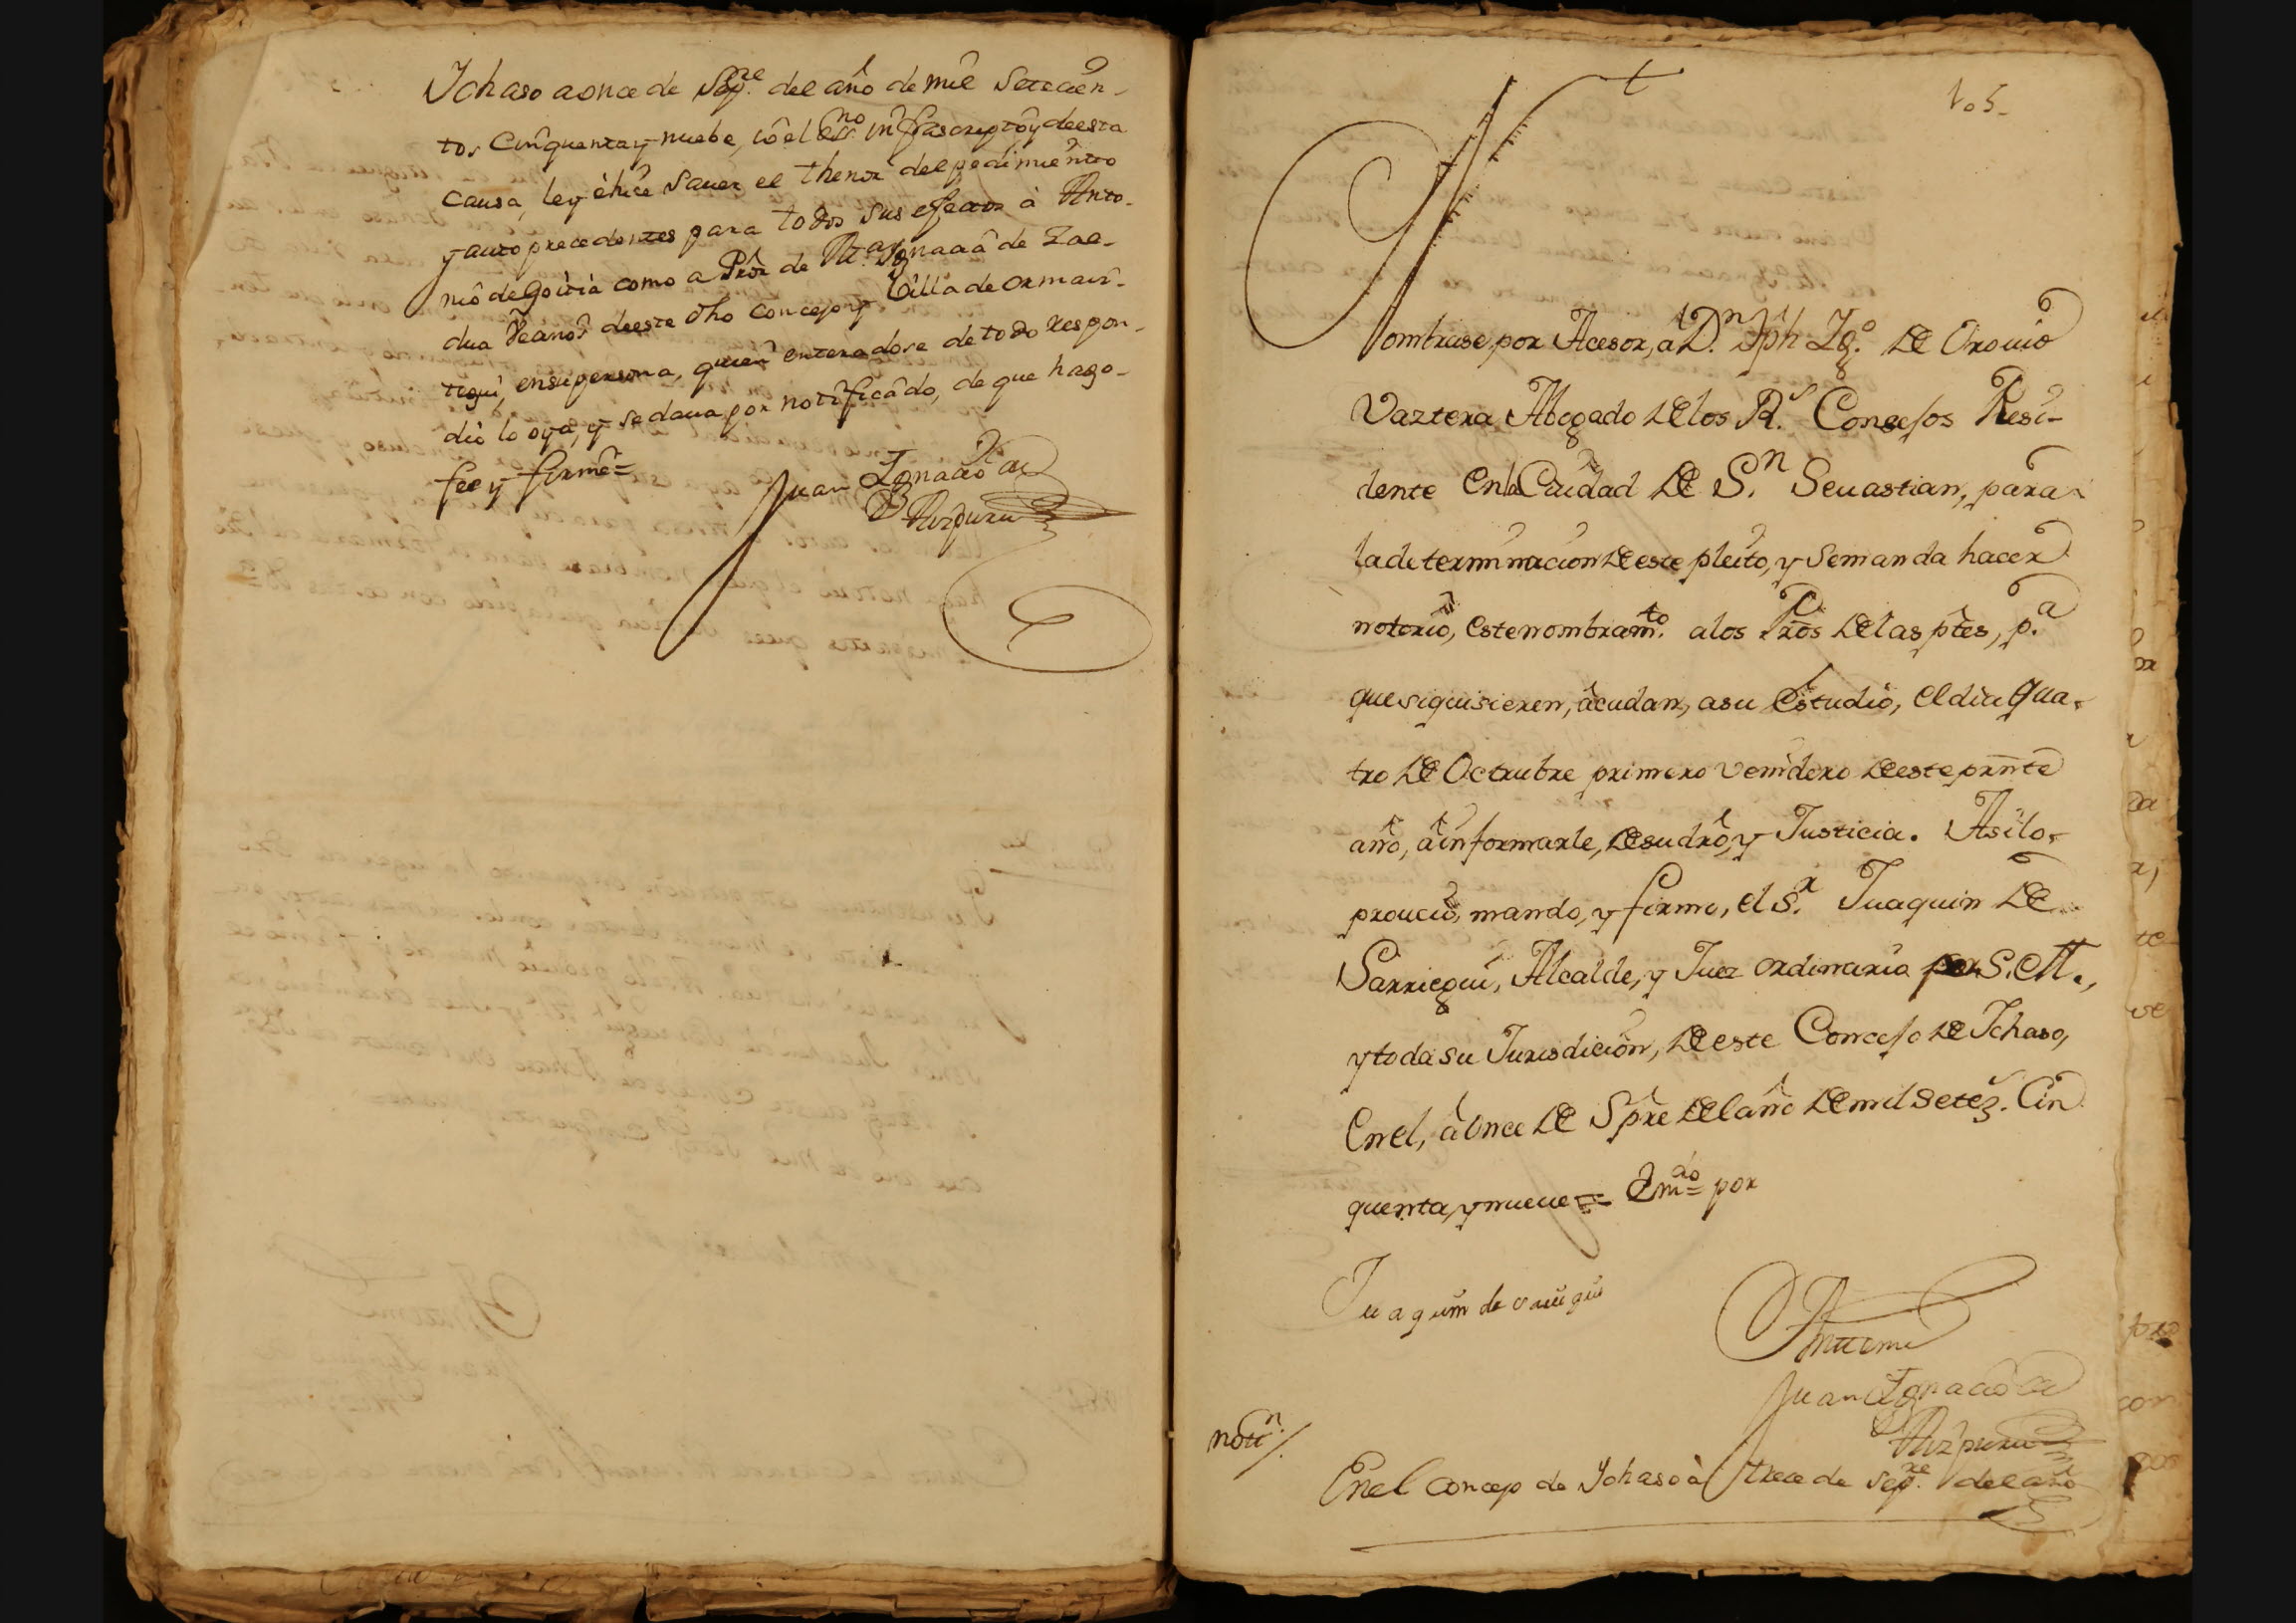 Ychaso a once de Sep.re del año de mil Setecien-
tos Cinquenta y nuebe, io el Ess.no infrascripto y de esta
causa, ley è hice Saver el thenor del pedimiento
y auto precedentes para todos sus efectos à Anto-
nio de Goiria como a Pror de M.a Ignacia de Zal-
dua Veanos de este dho concejo y Villa de ormais-
tegui, en su persona, quien enterados e de todo respon-
dio lo oya, y se daua por notificado, de que hago-
fee y firmé=
Juan Ignacio de
Aizpuru
105-
Nombrase por Acesor, a D.n Jph Ig.o de Orouio
Vaztera Abogado de los R.s Consejos Resi-
dente en la Ciudad de S.n Seuastian, para
la determinacion de este pleito, y se manda hacer
notorio, este nombram.to a los Prōs de las ptes, p.a
que si quisieren, acudan, a su Estudio, el dia qua-
tro de Octtubre primero venidero de este prnte
año, à informarle, de su dro, y Justicia. Asi lo
proueio, mando, y firmo, el S.r Juaquin de
Sarriegui, Alcalde, y Juez ordinario por S.M.,
y toda su Jurisdicion, de este Concejo de Ichaso,
En el, à once de Spre del año de mil setez. Cin
quenta, y nueue = Em.do = por
Juaquim de sariegui
Ante mi
Juan Ignacio de
Aizpuru
noti.n /.
En el concejo de Ychaso à trece de sep.re del año